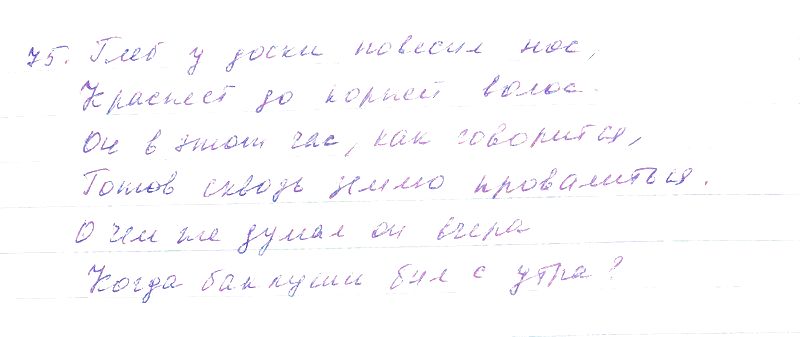 75. Глеб у доски повесил нос,
Краснеет до корней волос.
Он в этот час, как говорится,
Готов сквозь землю провалиться.
О чем же думал он вчера
Когда баклуши бил с утра?